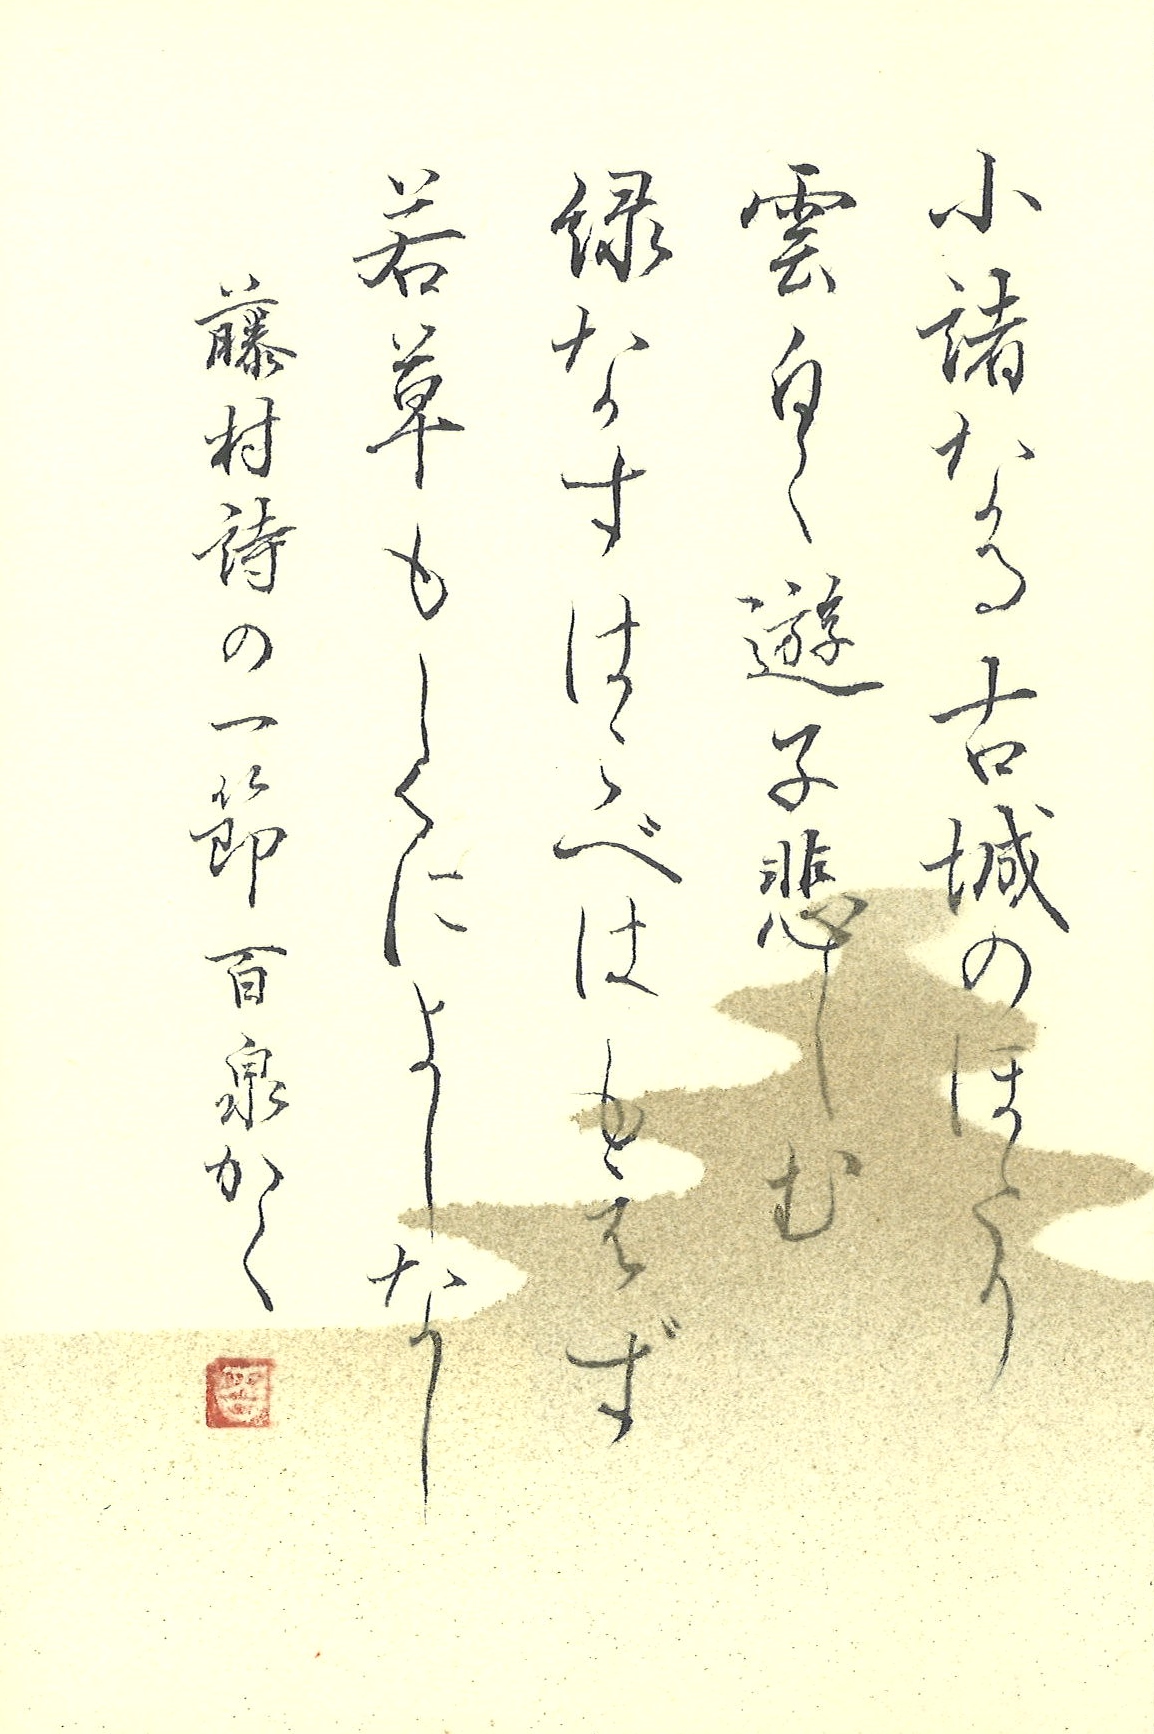 小諸なる古城のほとり
雲白く遊子悲しむ
緑なすはこべはもえず
若草もしくによしなし
藤村詩の一節 百泉かく